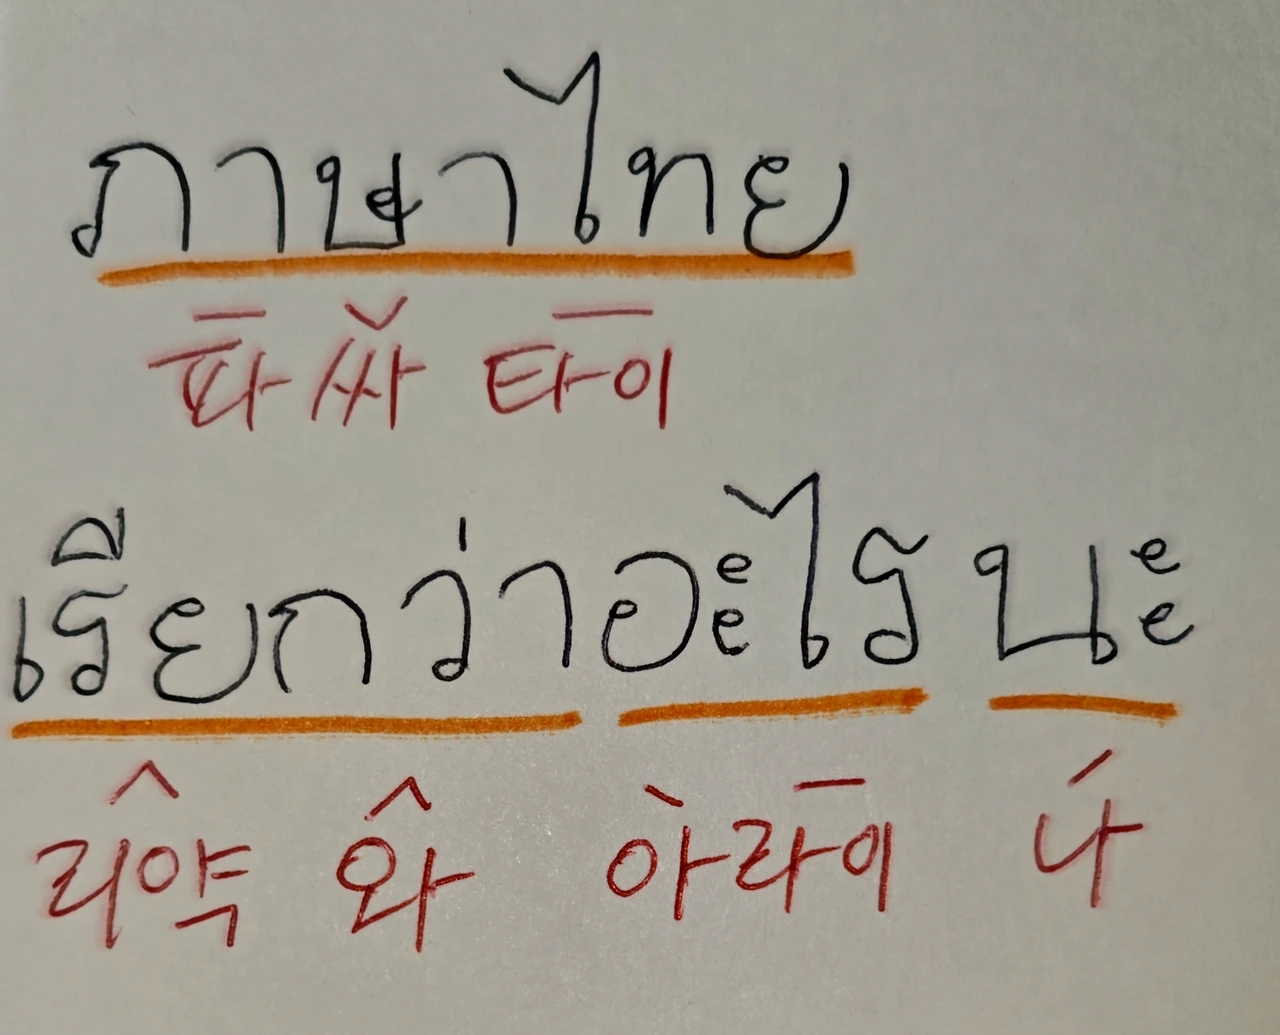 ภาษาไทย
파 싸 타이
เรียกว่าอะไร นะ
리약 와 아라이 나